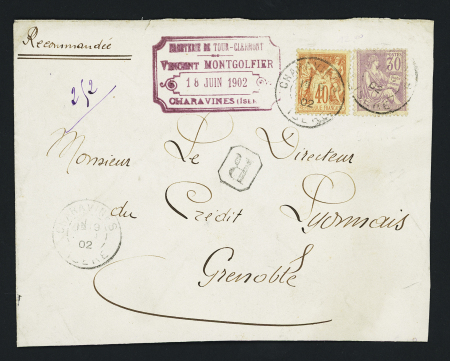 Recommandée
PAPETERIE DE TOUR-CLERMONT
DE
VINCENT MONTGOLFIER
18 JUIN 1902
CHARAVINES (ISÈRE)
40
30
02
2/2
R
Monsieur Le Directeur
du Crédit Lyonnais
Grenoble
CHARAVINES
02
ISERE